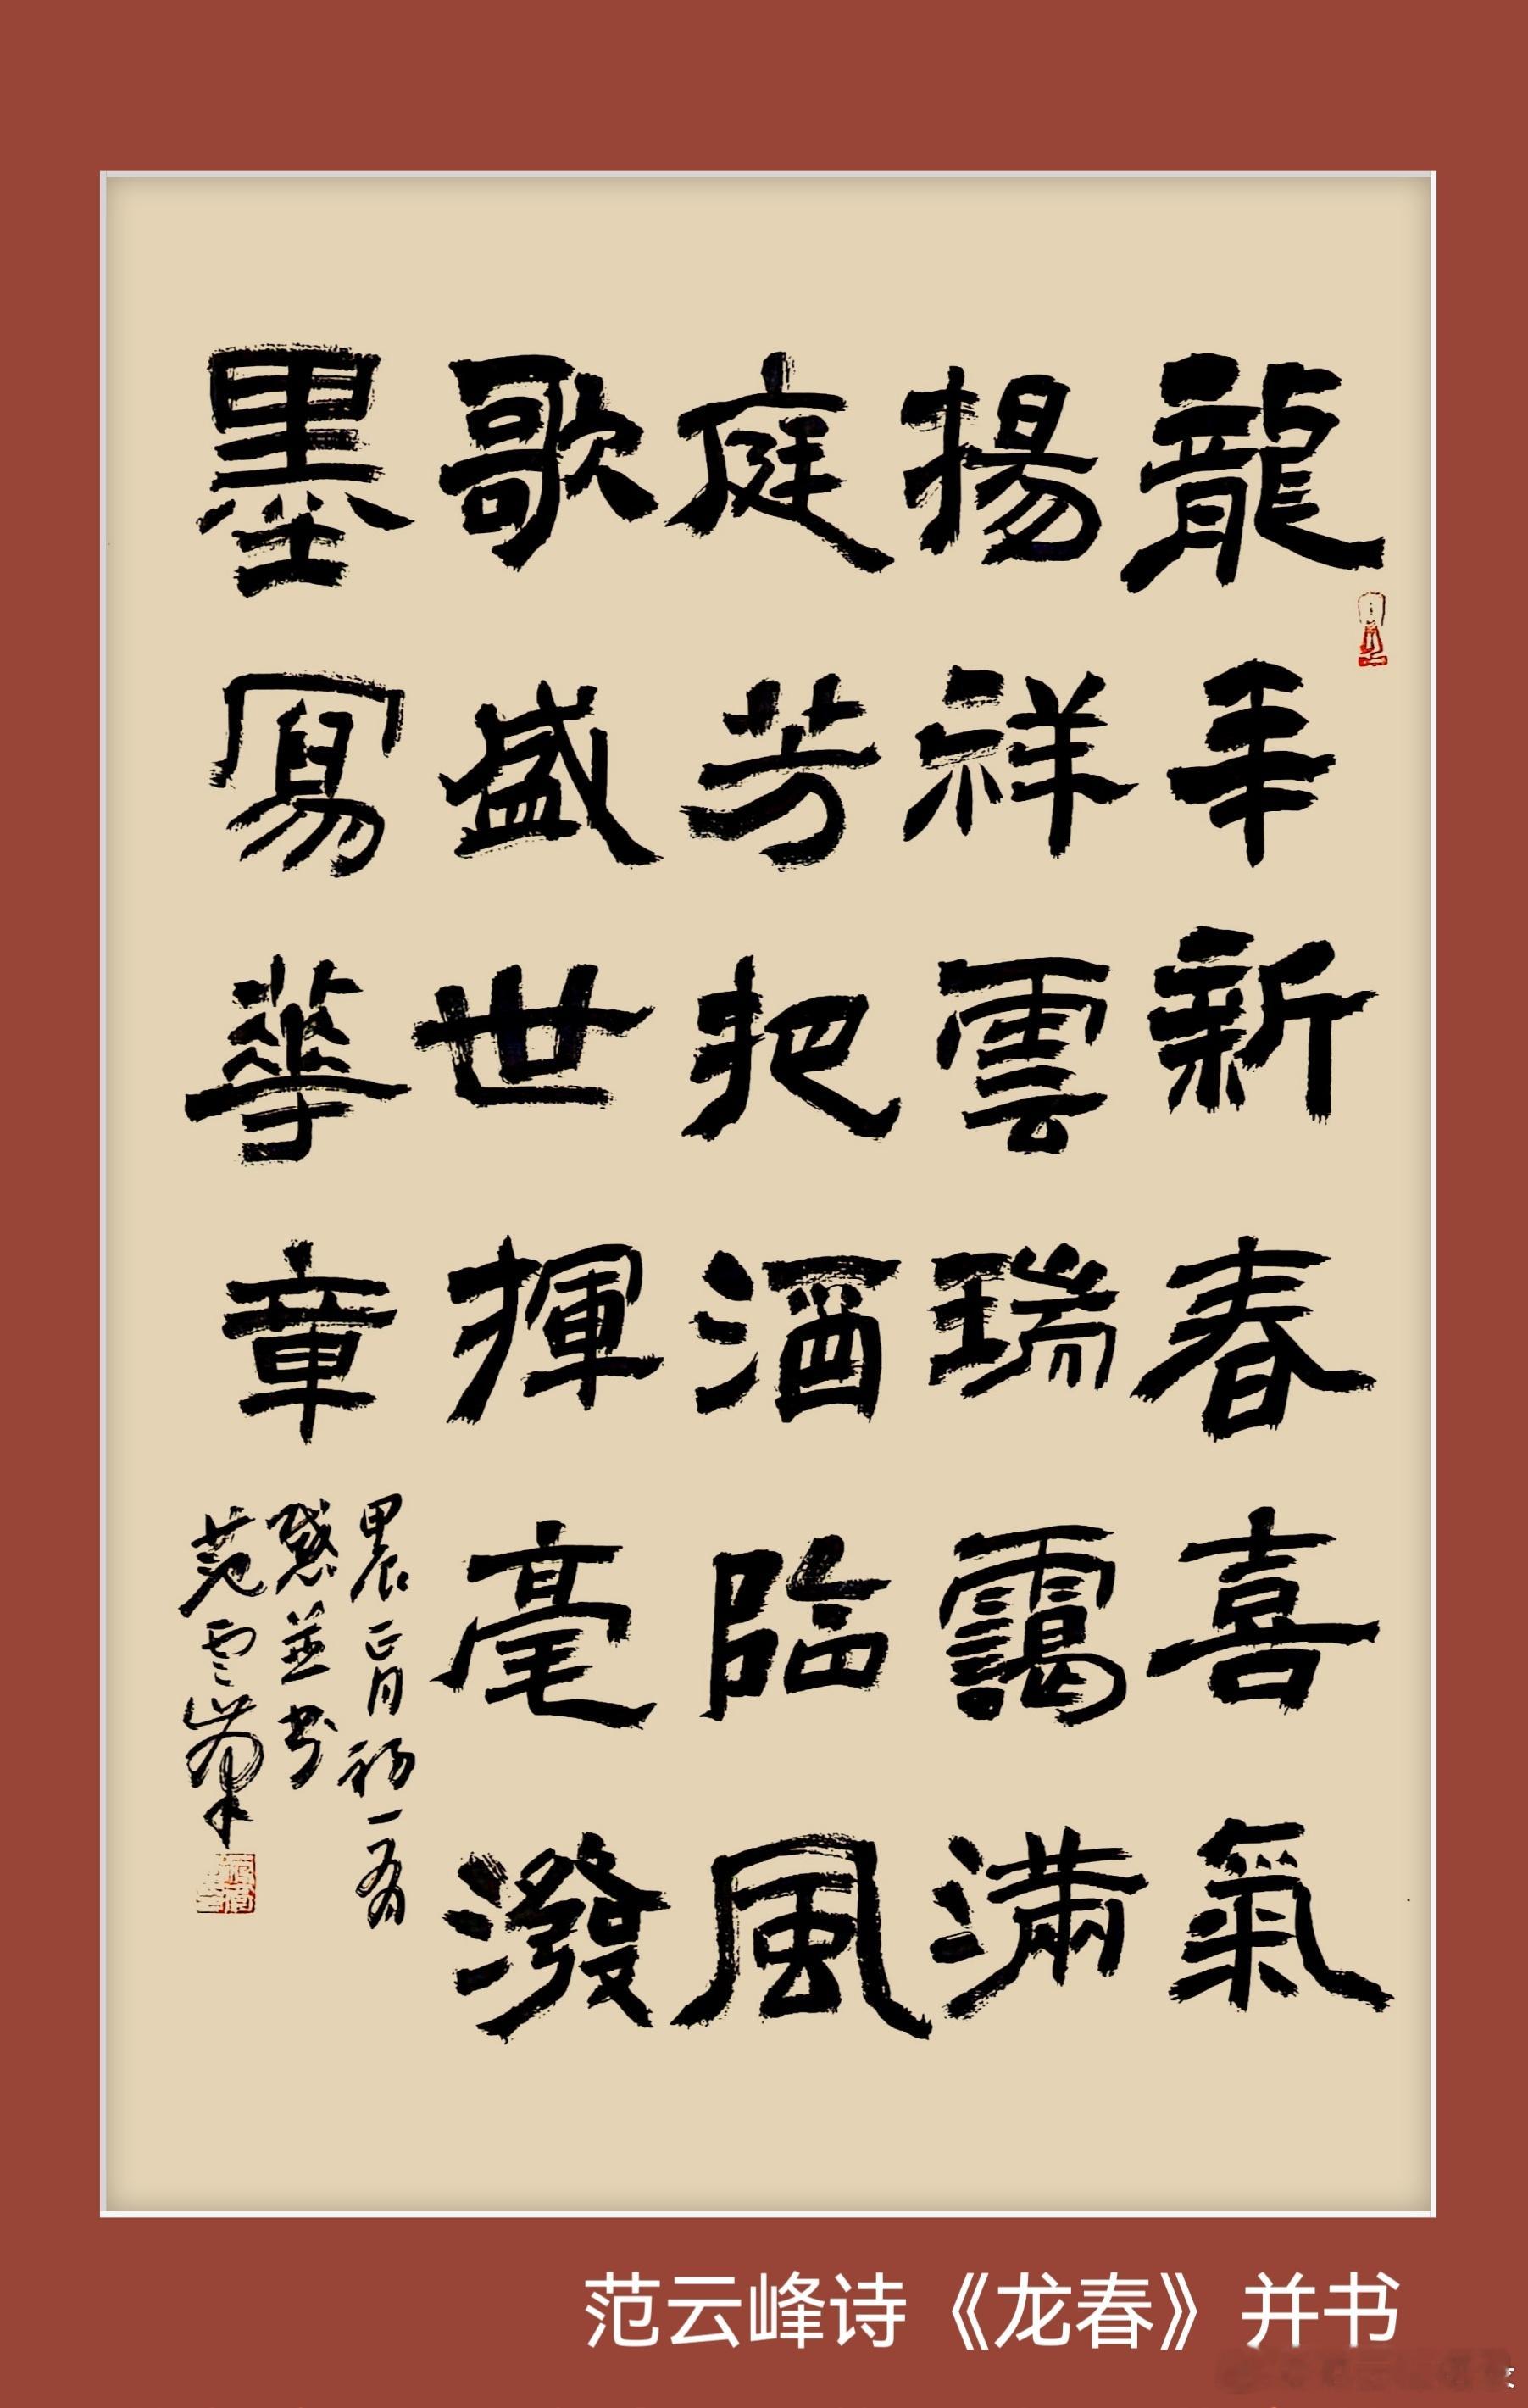 龍年新春喜氣
揚祥雲瑞靄滿
庭芳把酒臨風
歌盛世揮毫潑
墨寫華章
甲辰正月初一有
感並书
范雲峯
范云峰诗《龙春》并书